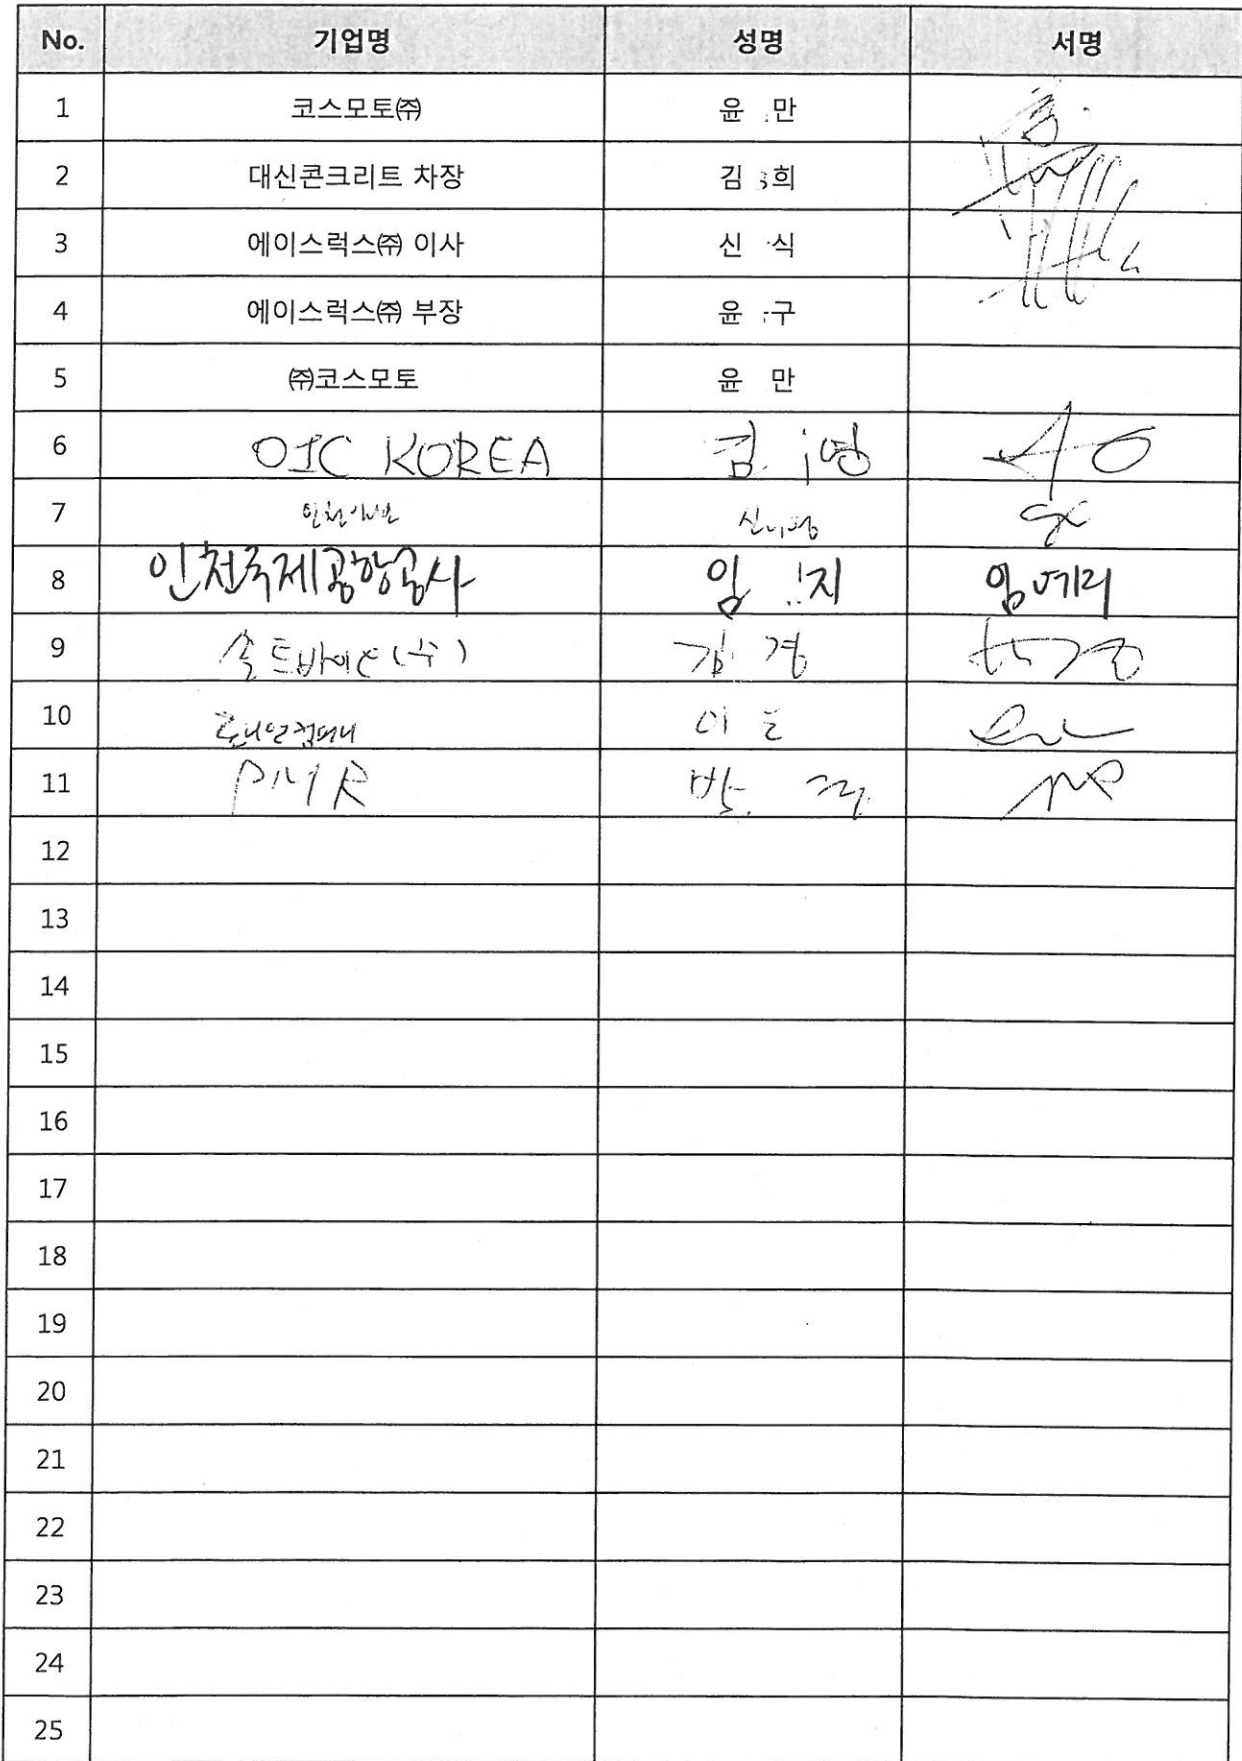 No. 기업명 성명 서명
1 코스모토㈜ 윤 만
2 대신콘크리트 차장 김 희
3 에이스럭스㈜ 이사 신 식
4 에이스럭스㈜ 부장 윤 구
5 ㈜코스모토 윤 만
6 OIC KOREA 김 영
7
8 인천국제공항공사 임 지
9 (주) 김 경
10 이
11 PMR 박
12
13
14
15
16
17
18
19
20
21
22
23
24
25